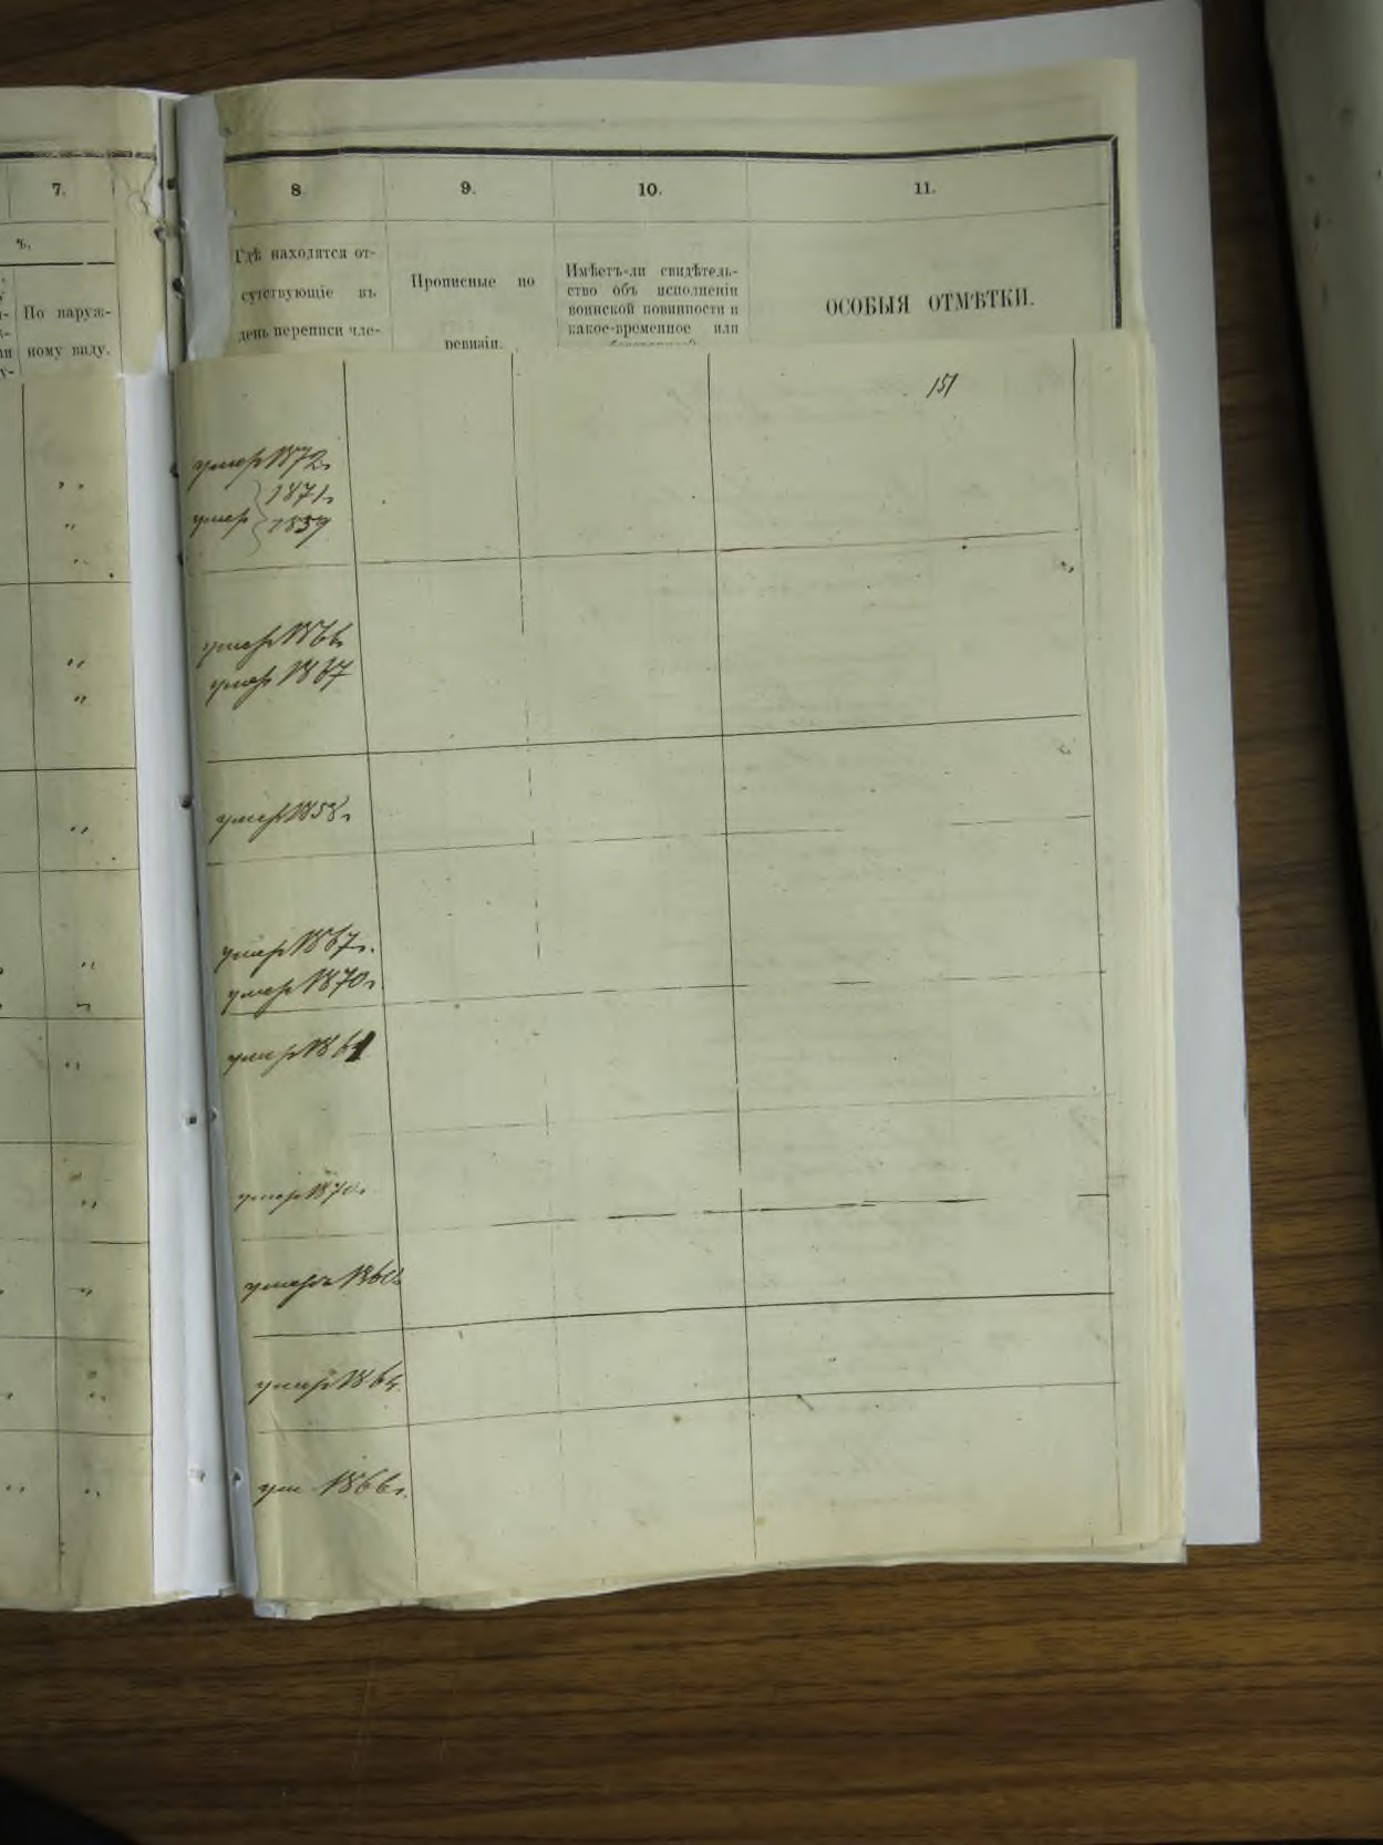 7.
8
9.
10.
11.
ъ.
По наруж-
ному виду.
Гдѣ находятся от-
сутствующіе въ
день переписи чле-
Прописные по
ревизіи.
Имѣетъ-ли свидѣтель-
ство объ исполненіи
воинской повинности и
какое-временное или
ОСОБЫЯ ОТМѢТКИ.
151
умер 1872г
1871г
умер 1859
умер 1866
умер 1867
умер 1858г
умер 1867г.
умер 1870г
умер 1861
умер 1870г
умеръ 1860г
умер 1864
ум 1866г.